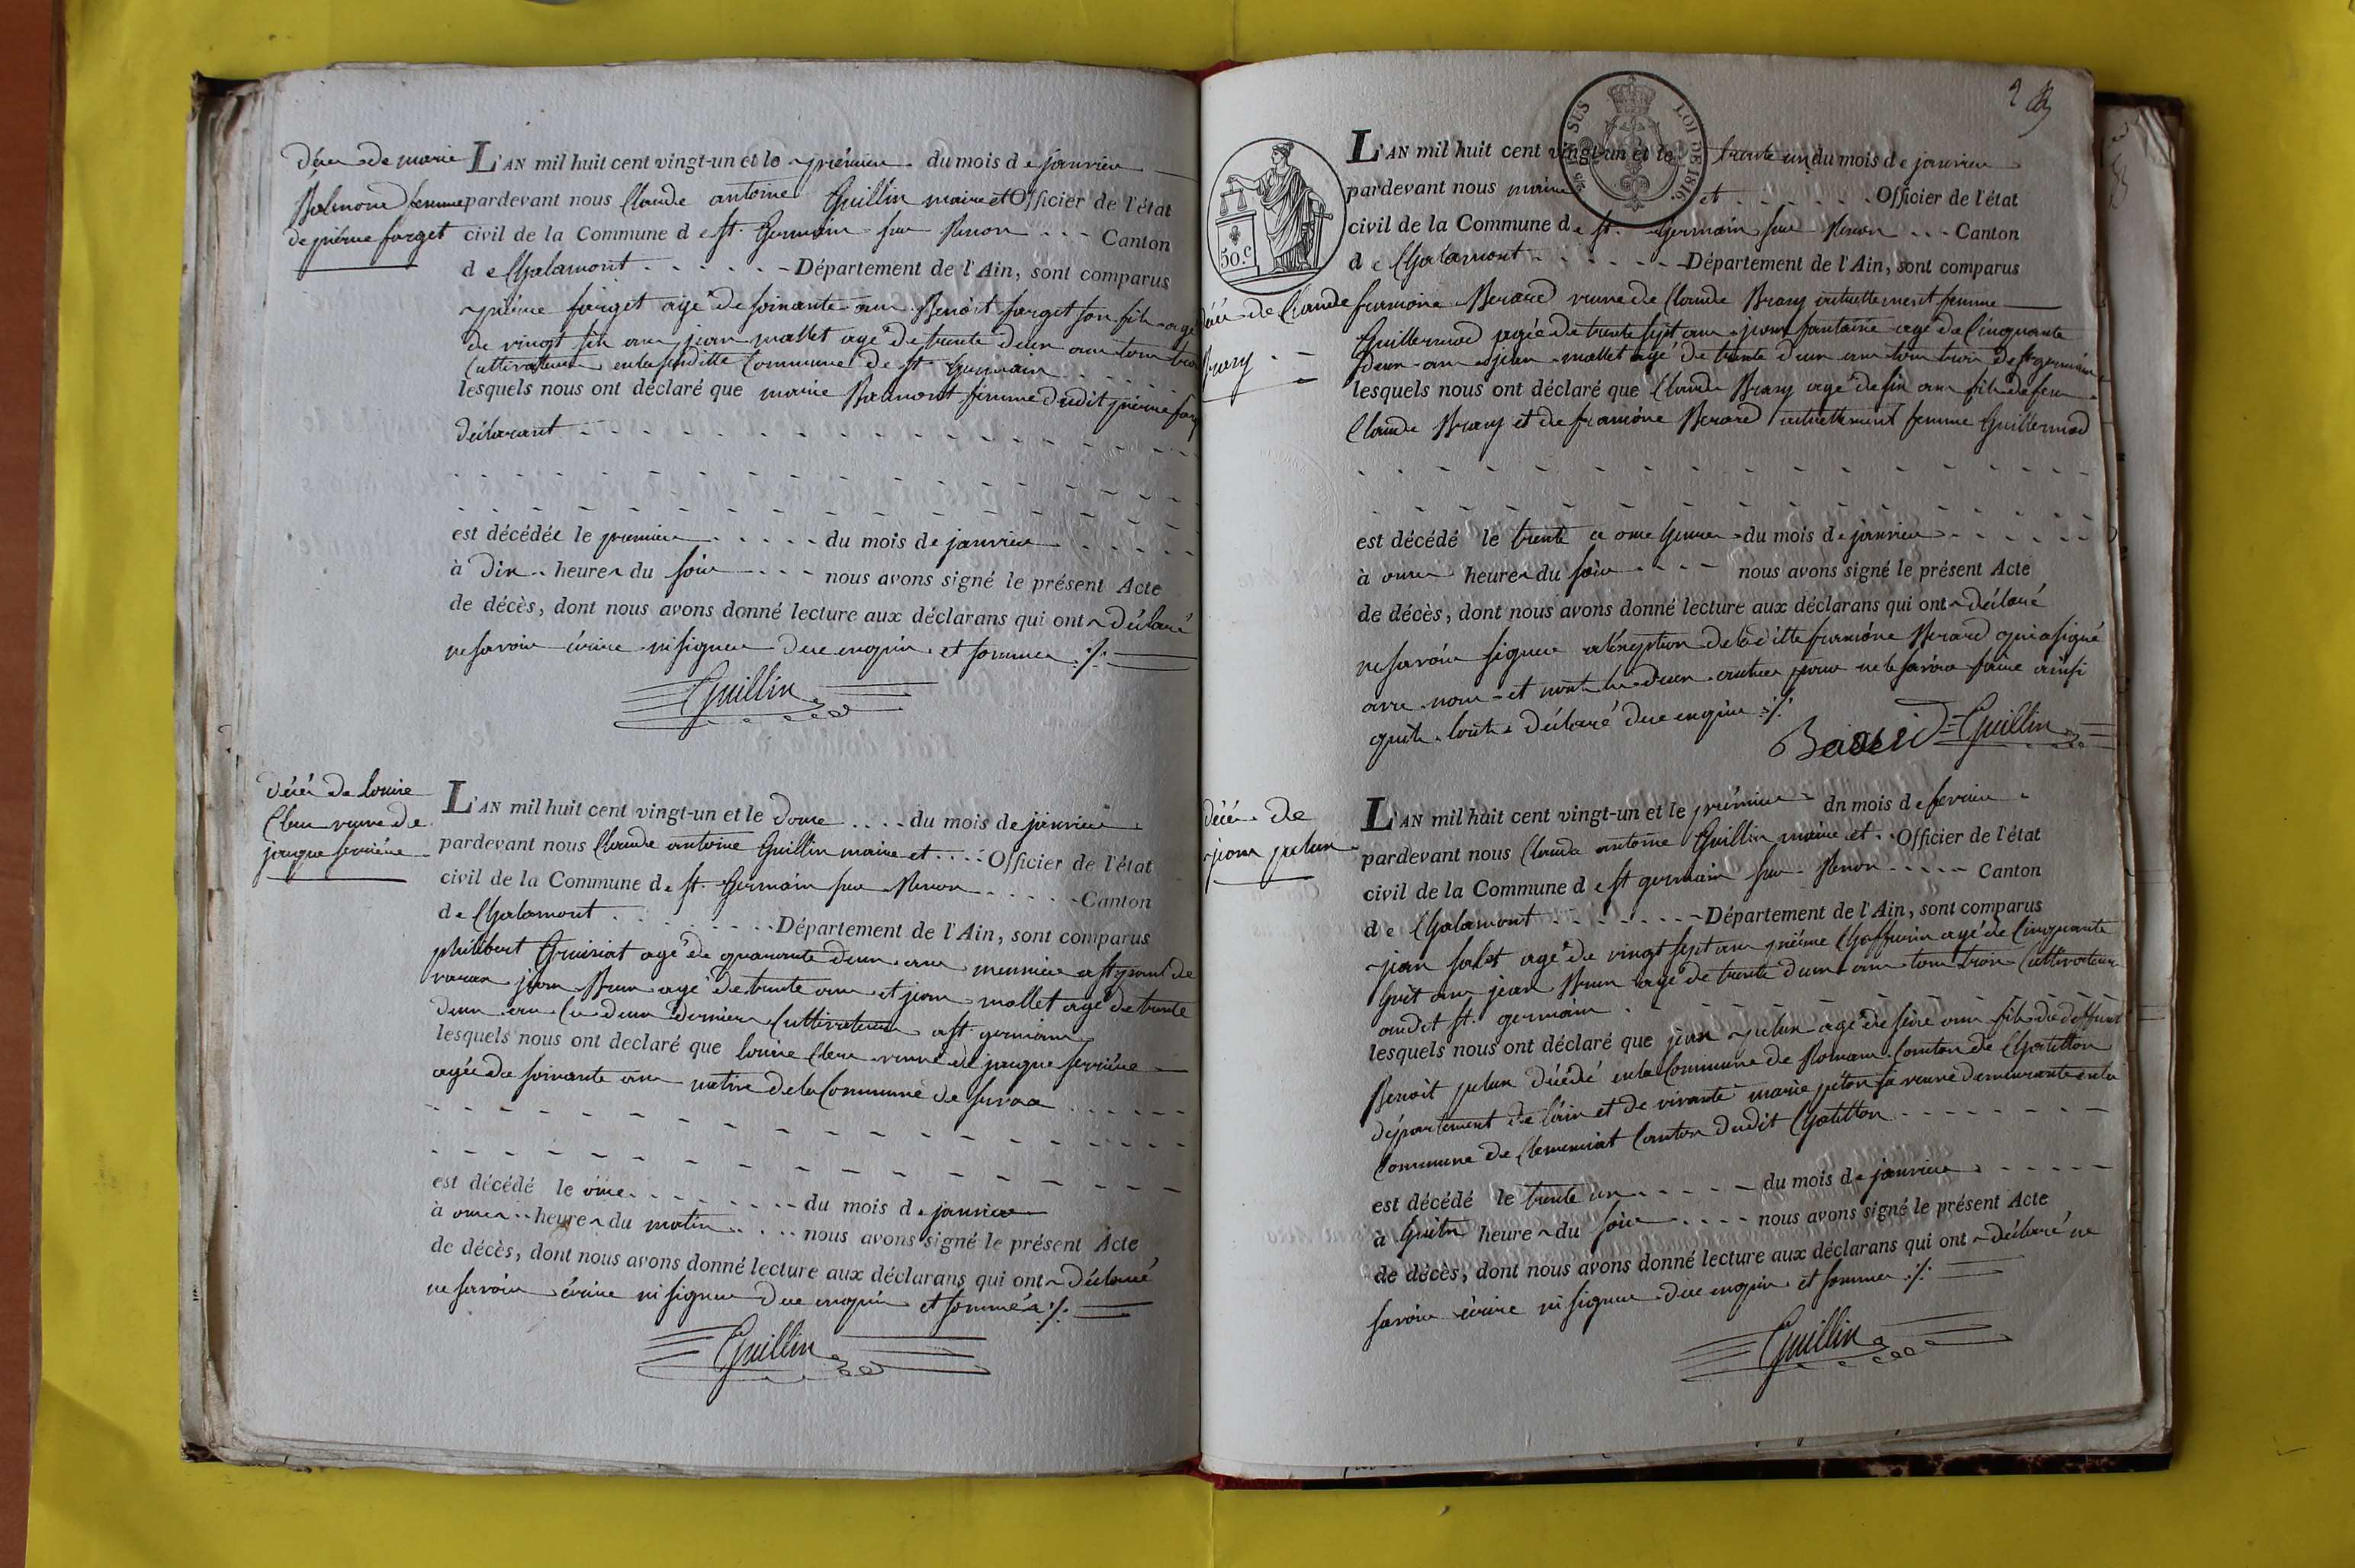 décès de marie
Balmont femme
de piérre forget
L'AN mil huit cent vingt-un et le premier du mois de janvier
pardevant nous Claude antoine Guillin maire et Officier de l'état
civil de la Commune de St. Germain sur Renon Canton
de Chalamont Département de l'Ain, sont comparus
piérre forget agé de soixante ans Benoit forget son fils agé
de vingt six ans jean mallet agé de trente deux ans tous trois
Cultivateurs en la susditte Commune de St. Germain
lesquels nous ont déclaré que marie Balmont femme dudit piérre forget
déclarant
est décédée le premier du mois de janvier
à dix heures du soir nous avons signé le présent Acte
de décès, dont nous avons donné lecture aux déclarans qui ont déclaré
ne savoir écrire ni signer de ce enquis et sommés ./.
Guillin
décès de louise
Clerc veuve de
jaque ferriére
L'AN mil huit cent vingt-un et le douze du mois de janvier
pardevant nous Claude antoine Guillin maire et Officier de l'état
civil de la Commune de St. Germain sur Renon Canton
de Chalamont Département de l'Ain, sont comparus
philibert agé de quarante deux ans meunier a St paul de
varax jean Brun agé de trente ans et jean mallet agé de trente
deux ans les deux derniers Cultivateurs a St. germain
lesquels nous ont declaré que louise Clerc veuve de jaque ferriére
agée de soixante ans native de la Commune de
est décédé le onze du mois de janvier
à onze heures du matin nous avons signé le présent Acte
de décès, dont nous avons donné lecture aux déclarans qui ont déclaré
ne savoir écrire ni signer de ce enquis et sommés ./.
Guillin
2
SUS LOI DE 1816
50.C
L'AN mil huit cent vingt-un et le trente un du mois de janvier
pardevant nous maire et Officier de l'état
civil de la Commune de St. Germain sur Renon Canton
de Chalamont Département de l'Ain, sont comparus
décès de Claude
Brary
francoise Berard veuve de Claude Brary actuellement femme
Guillermod agée de trente sept ans jean fontaine agé de Cinquante
deux ans jean mallet agé de trente deux ans tous trois de St germain
lesquels nous ont déclaré que Claude Brary agé de six ans fils de feu
Claude Brary et de francoise Berard actuellement femme Guillermod
est décédé le trente a onze heures du mois de janvier
à onze heures du soir nous avons signé le présent Acte
de décès, dont nous avons donné lecture aux déclarans qui ont déclaré
ne savoir signer a l'exeption de la ditte francoise Berard qui a signé
avec nous et non les deux autres pour ne le savoir faire ainsi
qu'ils l'ont déclaré de ce enquis ./.
Guillin
décès de
jean
L'AN mil huit cent vingt-un et le premier du mois de fevrier
pardevant nous Claude antoine Guillin maire et Officier de l'état
civil de la Commune de St germain sur Renon Canton
de Chalamont Département de l'Ain, sont comparus
jean agé de vingt sept ans piérre agé de Cinquante
huit ans jean Brun agé de trente deux ans tous trois Cultivateurs
audit St. germain
lesquels nous ont déclaré que jean agé de seize ans fils du deffunt
Benoit décédé en la Commune de Romans Canton de Chatillon
département de l'ain et de vivante marie sa veuve demeurante en la
Commune de Clemenciat Canton dudit Chatillon
est décédé le trente un du mois de janvier
à huits heures du soir nous avons signé le présent Acte
de décès, dont nous avons donné lecture aux déclarans qui ont déclaré ne
savoir écrire ni signer de ce enquis et sommés ./.
Guillin